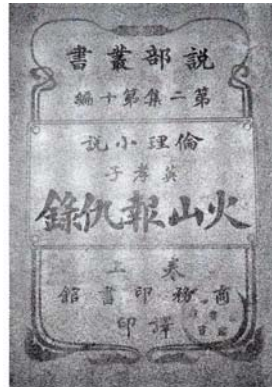 說部叢書
第二集第十編
倫理小說
英孝子
火山報仇錄
上卷
商務印書館
譯印